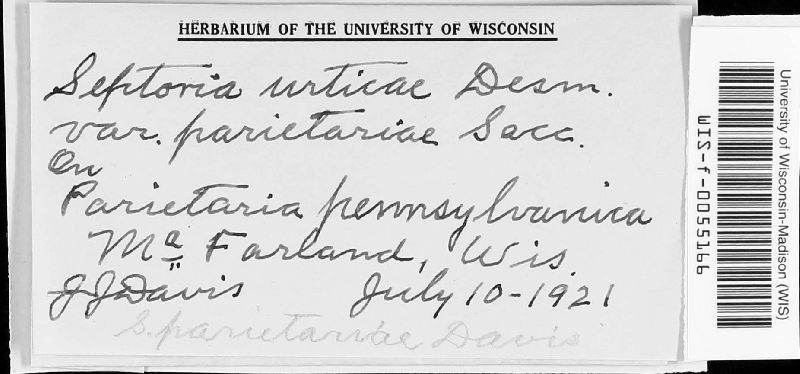 HERBARIUM OF THE UNIVERSITY OF WISCONSIN
Septoria urticae Desm.
var. parietariae Sacc.
On
Parietaria pennsylvanica
Mc Farland, Wis.
J J Davis July 10-1921
S. parietariae Davis
University of Wisconsin-Madison (WIS)
WIS-f-0055166